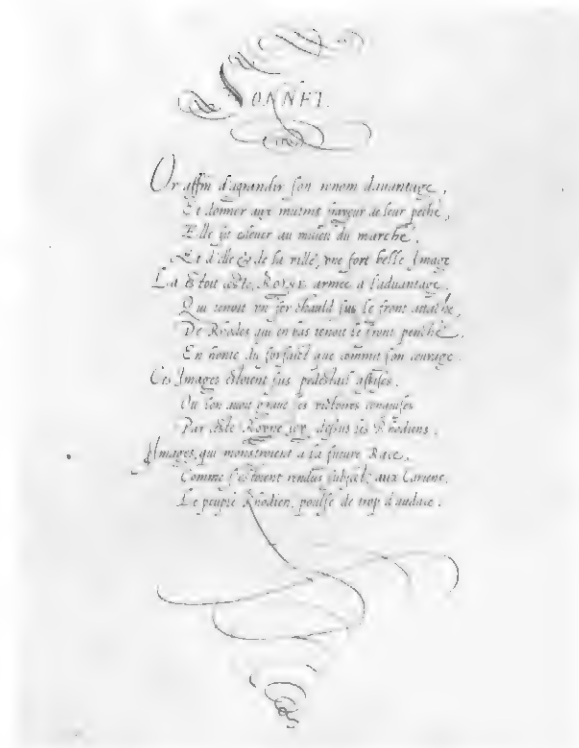 SONNET.
Or affin d'agrandir son renom dauantage,
Et donner aux mutins frayeur de leur peché,
Elle fit esleuer au milieu du marché,
Et d'elle & de la ville, vne fort belle Image
La estoit ceste Royne armee a l'aduantage,
Qui tenoit vn fer chauld sus le front attaché,
De Rhodes qui en bas tenoit le front penché
En honte du forfaict que commit son courage.
Ces Images estoient sus pedestail assises,
Ou l'on auoit graué les victoires conquises
Par ceste Royne icy, dessus les Rhodiens,
Images, qui monstroient a la future Race,
Comme s'estoient rendus subiectz aux Cariens,
Le peuple Rhodien, poulsé de trop d'audace.